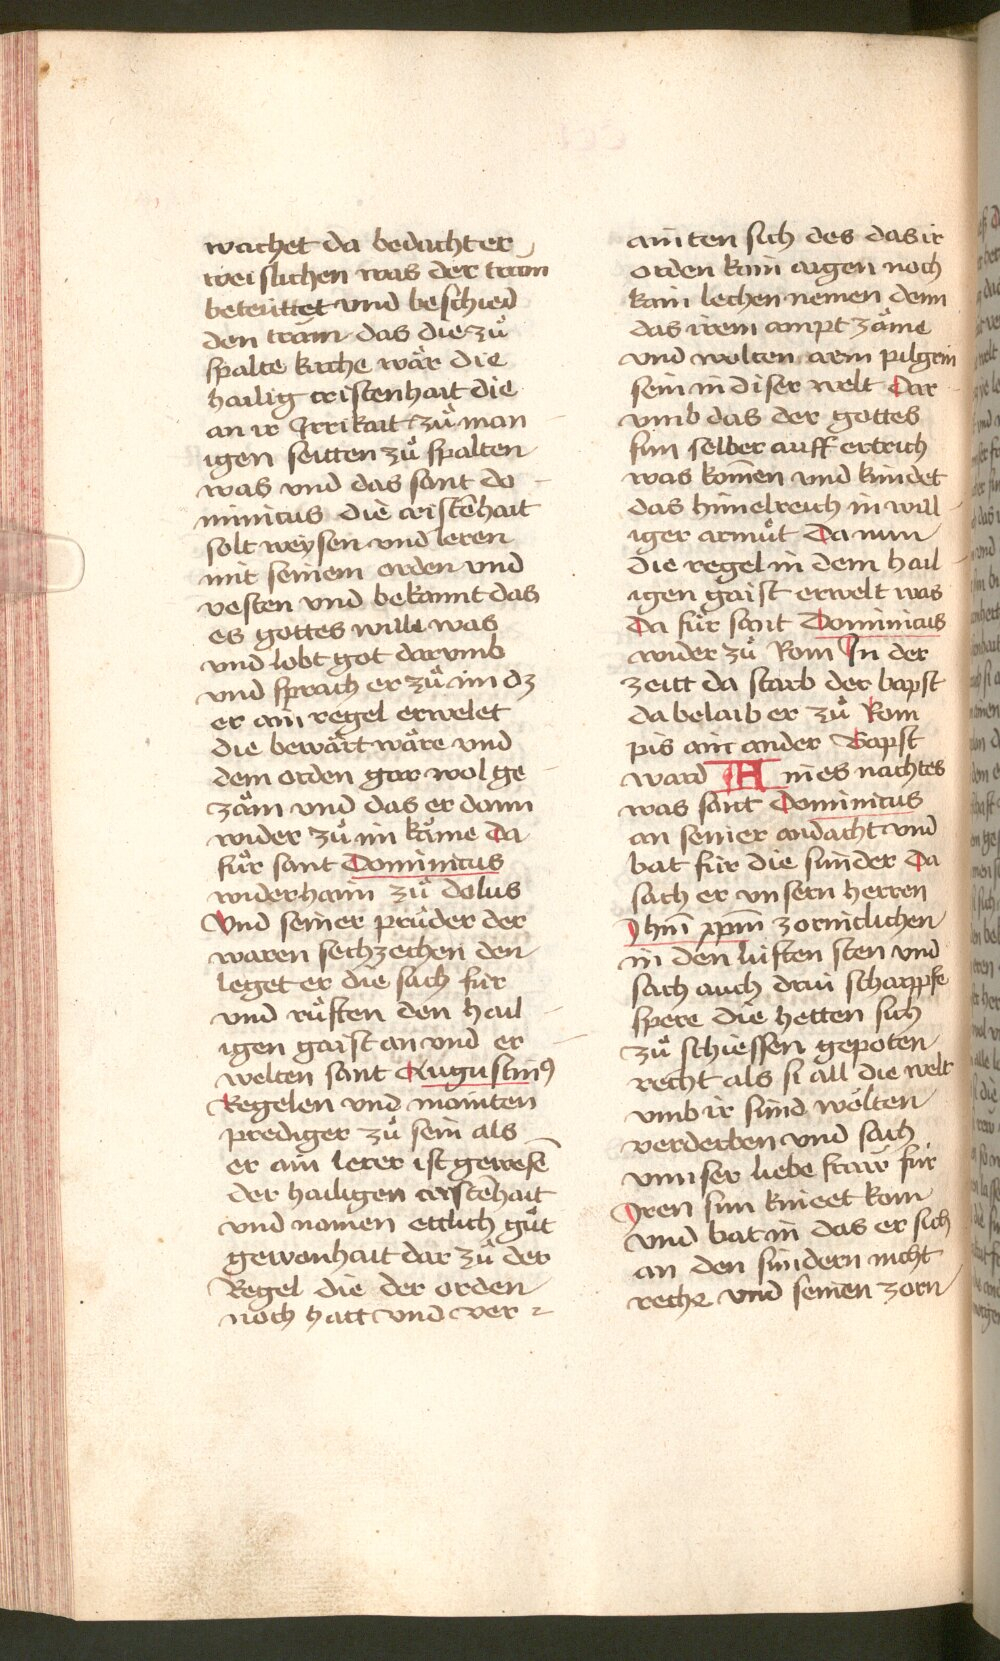 wachet da bedacht er
weislichen was der tram
beteüttet vnd beschied
den tram das die zuͦ
spalte kirche wär die
hailig cristenhait die
an ir Irrikait zuͦ man
igen seitten zuͦ spalten
was vnd das sant do
minicus die cristēhait
solt weysen vnd leren
mit seinem orden vnd
vesten vnd bekannt das
es gottes wille was
vnd lobt got darvmb
vnd sprach er zuͦ im dz
er ain regel erwelet
die bewärt wäre vnd
dem orden gar wol ge
zäm vnd das er dann
wider zuͦ im käme Da
fuͦr sant Dominicus
widerhaim zuͦ dolus
Vnd seiner pruͦder der
waren sechzechen den
leget er die sach für
vnd ruͦften den hail
igen gaist an vnd er
welten sant Augustinꝰ
Regelen vnd mainten
prediger zuͦ sein als
er ain lerer ist gewesē
der hailigen cristēhait
vnd namen ettlich guͦt
gewonhait dar zuͦ der
Regel die der orden
noch hatt vnd ver
ainten sich des das ir
orden kain aigen noch
kain lechen nemen denn
das irem ampt zäme
vnd wolten arm pilgrin
sein in diser welt Dar
vmb das der gottes
sun selber auff ertrich
was komēn vnd kündet
das himelreich in will
iger armuͦt Da nun
die regel in dem hail
igen gaist erwelt was
Da fuͦr sant Dominicus
wider zuͦ Rom In der
zeitt da starb der bapst
da belaib er zuͦ Rom
pis ain ander Bapst
ward Aines nachtes
was sant Dominicus
an seiner andacht vnd
bat für die sünder Da
sach er vnsern herren
Jhm̄ xpm̄ zornicliche
in den lüften sten vnd
sach auch drui scharppfe
spere die hetten sich
zuͦ schiessen gepoten
recht als si all die welt
vmb ir sünd wölten
verderben vnd sach
vnnser liebe fraw für
Iren sun knieet kom
vnd bat in das er sich
an den sündern nicht
reche vnd seinen zorn